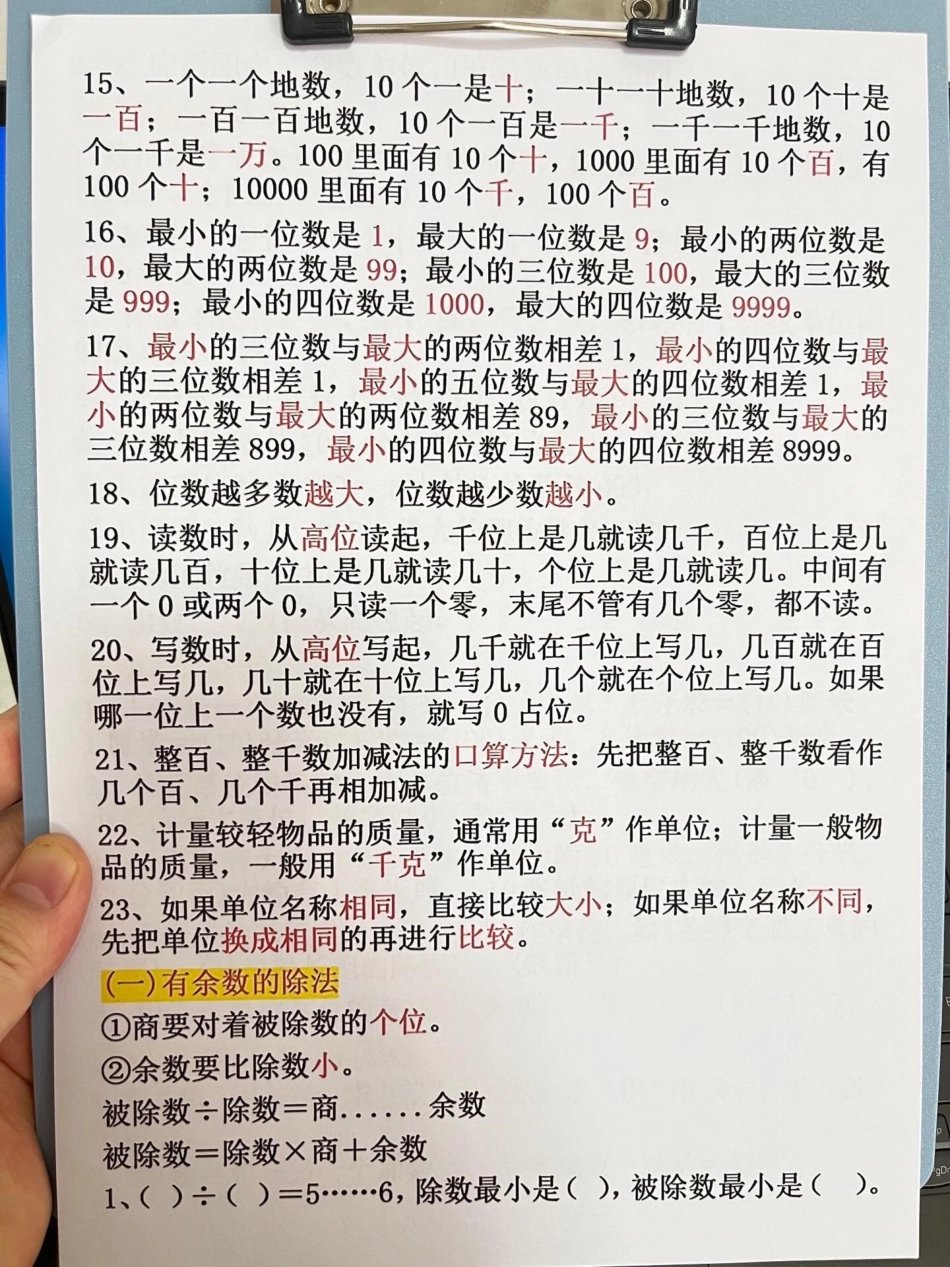 15、一个一个地数，10 个一是十；一十一十地数，10 个十是
一百；一百一百地数，10 个一百是一千；一千一千地数，10
个一千是一万。100 里面有 10 个十，1000 里面有 10 个百，有
100 个十；10000 里面有 10 个千，100 个百。
16、最小的一位数是 1，最大的一位数是 9；最小的两位数是
10，最大的两位数是 99；最小的三位数是 100，最大的三位数
是 999；最小的四位数是 1000，最大的四位数是 9999。
17、最小的三位数与最大的两位数相差 1，最小的四位数与最
大的三位数相差 1，最小的五位数与最大的四位数相差 1，最
小的两位数与最大的两位数相差 89，最小的三位数与最大的
三位数相差 899，最小的四位数与最大的四位数相差 8999。
18、位数越多数越大，位数越少数越小。
19、读数时，从高位读起，千位上是几就读几千，百位上是几
就读几百，十位上是几就读几十，个位上是几就读几。中间有
一个 0 或两个 0，只读一个零，末尾不管有几个零，都不读。
20、写数时，从高位写起，几千就在千位上写几，几百就在百
位上写几，几十就在十位上写几，几个就在个位上写几。如果
哪一位上一个数也没有，就写 0 占位。
21、整百、整千数加减法的口算方法：先把整百、整千数看作
几个百、几个千再相加减。
22、计量较轻物品的质量，通常用“克”作单位；计量一般物
品的质量，一般用“千克”作单位。
23、如果单位名称相同，直接比较大小；如果单位名称不同，
先把单位换成相同的再进行比较。
(一)有余数的除法
①商要对着被除数的个位。
②余数要比除数小。
被除数÷除数＝商......余数
被除数＝除数×商＋余数
1、( )÷( )＝5······6，除数最小是( )，被除数最小是( )。